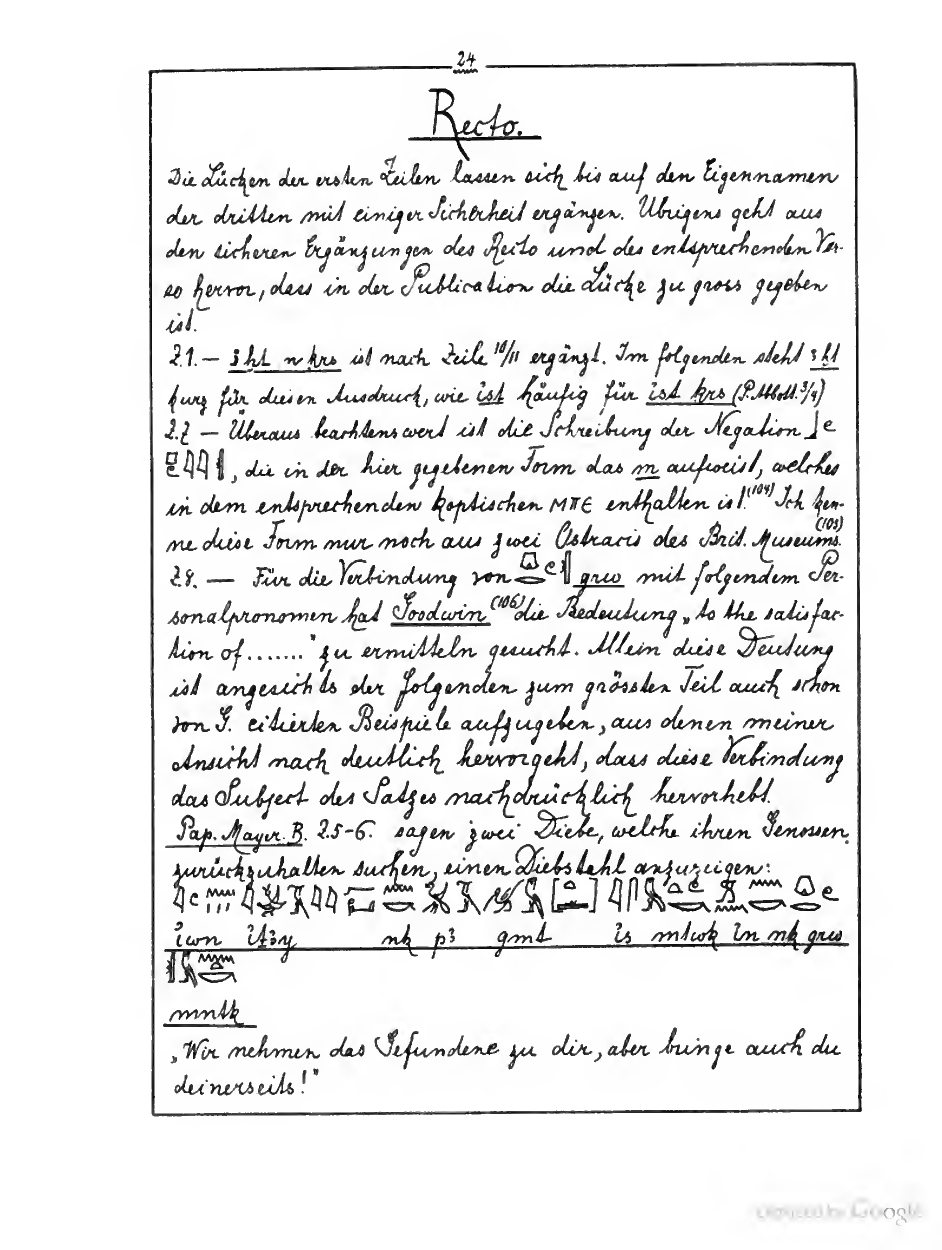 24
Recto.
Die Lücken der ersten Zeilen lassen sich bis auf den Eigennamen
der dritten mit einiger Sicherheit ergänzen. Übrigens geht aus
den sicheren Ergänzungen des Recto und des entsprechenden Ver-
so hervor, dass in der Publication die Lücke zu gross gegeben
ist.
Z.1. — ꜣḥt n ḳrs ist nach Zeile 10/11 ergänzt. Im folgenden steht ꜣḥt
kurz für diesen Ausdruck, wie ist häufig für ist ḳrs (P. Abbott. 3/4)
Z.7 — Überaus beachtenswert ist die Schreibung der Negation
, die in der hier gegebenen Form das m aufweist, welches
in dem entsprechenden koptischen ⲘⲠⲈ enthalten ist.(104) Ich ken-
ne diese Form nur noch aus zwei Ostracis des Brit. Museums.(105)
Z.8. — Für die Verbindung von grw mit folgendem Per-
sonalpronomen hat Goodwin (106) die Bedeutung „to the satisfac-
tion of ......." zu ermitteln gesucht. Allein diese Deutung
ist angesichts der folgenden zum grössten Teil auch schon
von G. citierten Beispiele aufzugeben, aus denen meiner
Ansicht nach deutlich hervorgeht, dass diese Verbindung
das Subject des Satzes nachdrücklich hervorhebt.
Pap. Mayer. B. Z.5-6. sagen zwei Diebe, welche ihren Genossen
zurückzuhalten suchen, einen Diebstahl anzuzeigen:
iwn itꜣy nk pꜣ gmt is mtwk in nk grw
mntk
„Wir nehmen das Gefundene zu dir, aber bringe auch du
deinerseits!"
Google